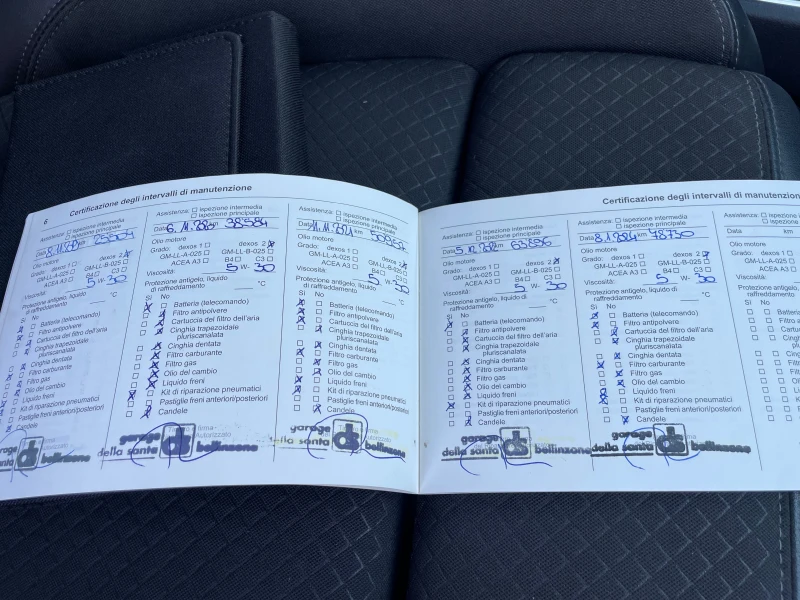 6
Certificazione degli intervalli di manutenzione
Assistenza: ispezione intermedia
ispezione principale
Data km
Olio motore
Grado: dexos 1 dexos 2
GM-LL-A-025 GM-LL-B-025
ACEA A3 B4 C3
Viscosità: 5 W- 30
Protezione antigelo, liquido
di raffreddamento °C
Sì No
Batteria (telecomando)
Filtro antipolvere
Cartuccia del filtro dell'aria
Cinghia trapezoidale
pluriscanalata
Cinghia dentata
Filtro carburante
Filtro gas
Olio del cambio
Liquido freni
Kit di riparazione pneumatici
Pastiglie freni anteriori/posteriori
Candele
garage
della santa ds bellinzona
Assistenza: ispezione intermedia
ispezione principale
Data 38584
Olio motore
Grado: dexos 1 dexos 2
GM-LL-A-025 GM-LL-B-025
ACEA A3 B4 C3
Viscosità: 5 W- 30
Protezione antigelo, liquido
di raffreddamento °C
Sì No
Batteria (telecomando)
Filtro antipolvere
Cartuccia del filtro dell'aria
Cinghia trapezoidale
pluriscanalata
Cinghia dentata
Filtro carburante
Filtro gas
Olio del cambio
Liquido freni
Kit di riparazione pneumatici
Pastiglie freni anteriori/posteriori
Candele
garage
della santa ds bellinzona
Assistenza: ispezione intermedia
ispezione principale
Data km
Olio motore
Grado: dexos 1 dexos 2
GM-LL-A-025 GM-LL-B-025
ACEA A3 B4 C3
Viscosità: 5 W- 30
Protezione antigelo, liquido
di raffreddamento °C
Sì No
Batteria (telecomando)
Filtro antipolvere
Cartuccia del filtro dell'aria
Cinghia trapezoidale
pluriscanalata
Cinghia dentata
Filtro carburante
Filtro gas
Olio del cambio
Liquido freni
Kit di riparazione pneumatici
Pastiglie freni anteriori/posteriori
Candele
garage
della santa ds
Certificazione degli intervalli di manutenzion
Assistenza: ispezione intermedia
ispezione principale
Data 63896
Olio motore
Grado: dexos 1 dexos 2
GM-LL-A-025 GM-LL-B-025
ACEA A3 B4 C3
Viscosità: 5 W- 30
Protezione antigelo, liquido
di raffreddamento °C
Sì No
Batteria (telecomando)
Filtro antipolvere
Cartuccia del filtro dell'aria
Cinghia trapezoidale
pluriscanalata
Cinghia dentata
Filtro carburante
Filtro gas
Olio del cambio
Liquido freni
Kit di riparazione pneumatici
Pastiglie freni anteriori/posteriori
Candele
garage
della santa ds bellinzona
Assistenza: ispezione intermedia
ispezione principale
Data km 78730
Olio motore
Grado: dexos 1 dexos 2
GM-LL-A-025 GM-LL-B-025
ACEA A3 B4 C3
Viscosità: 5 W- 30
Protezione antigelo, liquido
di raffreddamento °C
Sì No
Batteria (telecomando)
Filtro antipolvere
Cartuccia del filtro dell'aria
Cinghia trapezoidale
pluriscanalata
Cinghia dentata
Filtro carburante
Filtro gas
Olio del cambio
Liquido freni
Kit di riparazione pneumatici
Pastiglie freni anteriori/posteriori
Candele
garage
della santa ds bellinzona
Assistenza:
Data km
Olio motore
Grado: dexos 1
GM-LL-A-025
ACEA A3
Viscosità:
Protezione antigelo, liquid
di raffreddamento
Sì No
Batteria
Filtro
Cartuccia
Cinghia
Cinghia
Filtro
Filtro
Olio